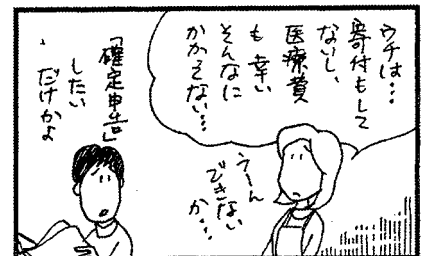 ウチは…
寄付もして
ないし、
医療費
も幸い
そんなに
かかってない…
うーん
できない
か…
「確定申告」
したい
だけかよ